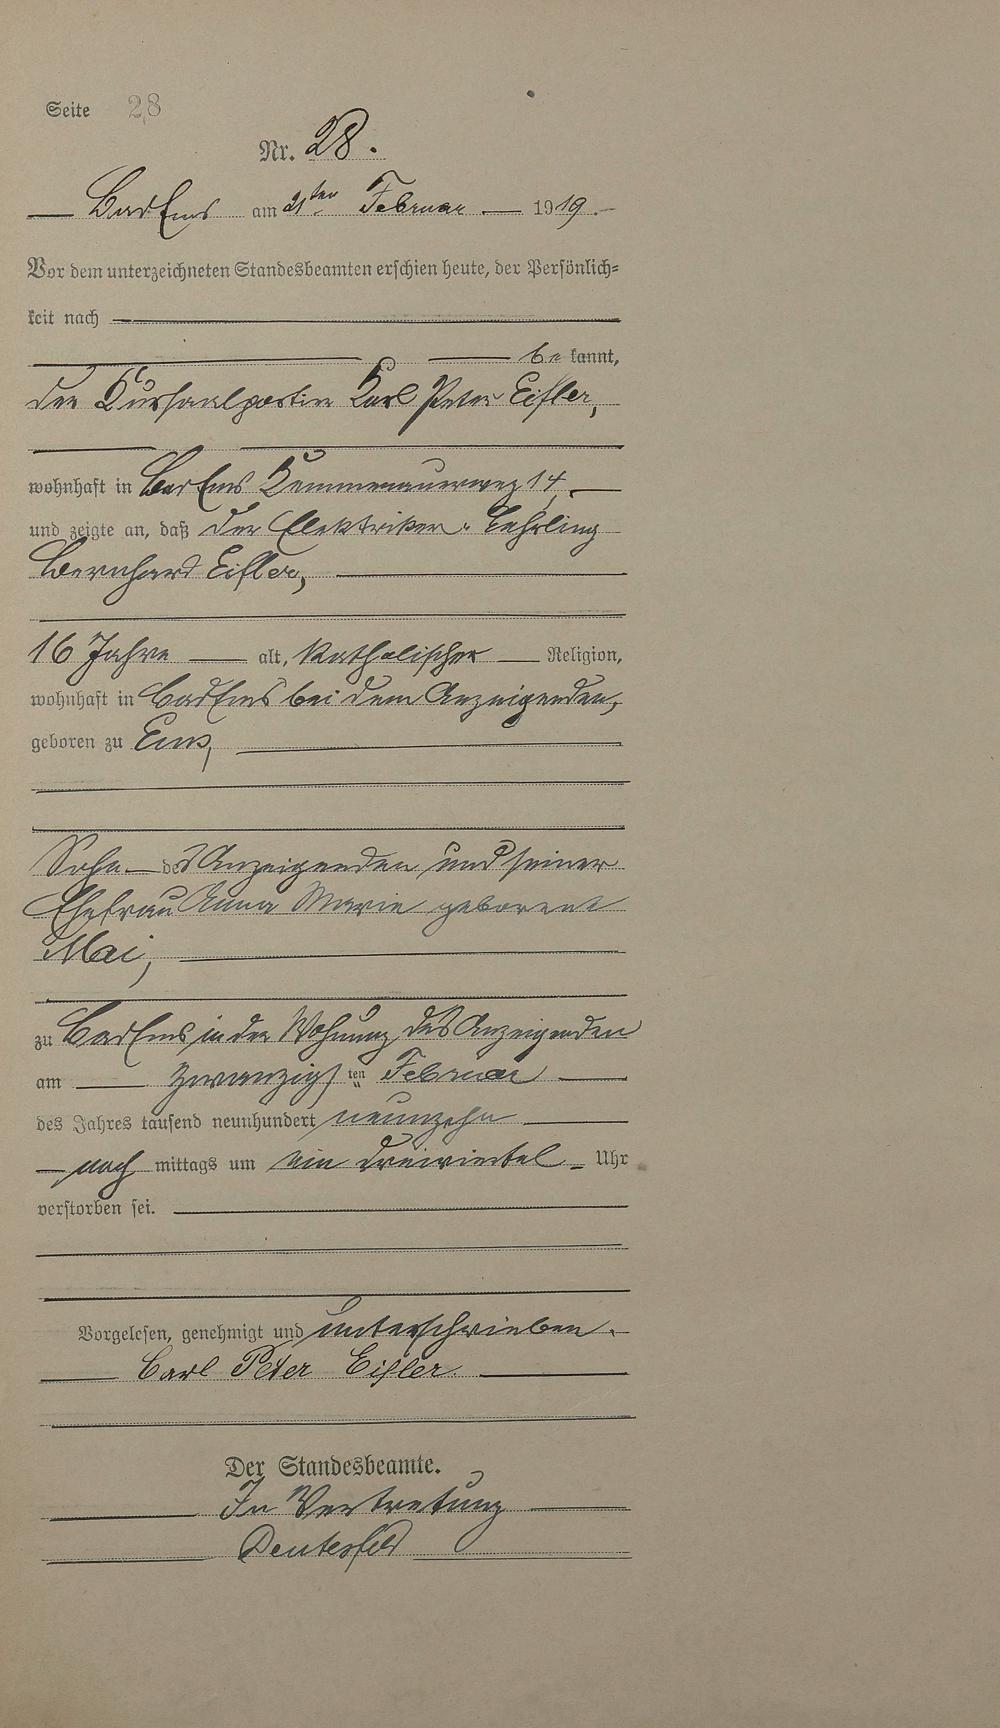 Seite 28
Nr. 28.
Bad Ems am 21ten Februar 1919.
Vor dem unterzeichneten Standesbeamten erschien heute, der Persönlich=
keit nach
be kannt,
der Kursaalportier Karl Peter Eifler,
wohnhaft in Bad Ems Kemmenauerweg 14,
und zeigte an, daß der Elektriker-Lehrling
Bernhard Eifler,
16 Jahre alt, katholischer Religion,
wohnhaft in Bad Ems bei dem Anzeigenden,
geboren zu Ems,
Sohn des Anzeigenden und seiner
Ehefrau Anna Maria geborene
Mai,
zu Bad Ems, in der Wohnung des Anzeigenden
am zwanzigsten Februar
des Jahres tausend neunhundert neunzehn
nach mittags um ein dreiviertel Uhr
verstorben sei.
Vorgelesen, genehmigt und unterschrieben.
Carl Peter Eifler.
Der Standesbeamte.
In Vertretung